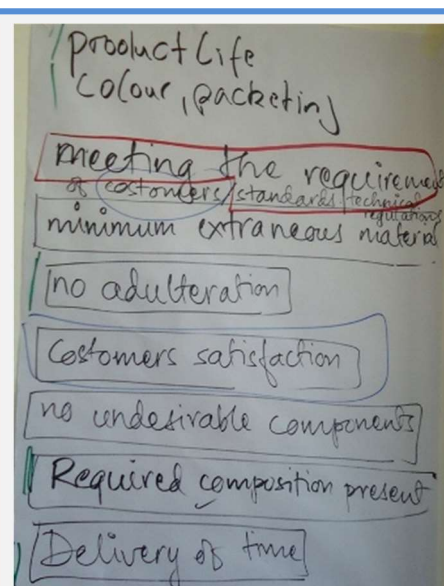 product Life
Colour, packeting
meeting the requirements
of costomers/standards/technical
regulations
minimum extraneous material
no adulteration
Costomers satisfaction
no undesirable components
Required composition present
Delivery of time